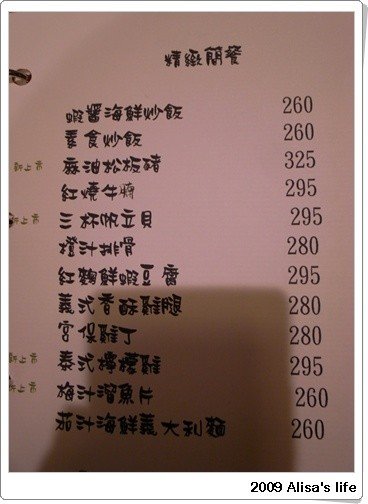 精緻簡餐
蝦醬海鮮炒飯 260
素食炒飯 260
新上市 麻油松板豬 325
紅燒牛腩 295
新上市 三杯帆立貝 295
橙汁排骨 280
紅麴鮮蝦豆腐 295
義式香酥雞腿 280
宮保雞丁 280
新上市 泰式檸檬雞 295
新上市 梅汁溜魚片 260
茄汁海鮮義大利麵 260
2009 Alisa's life